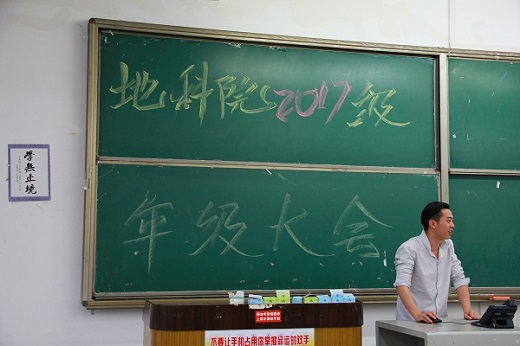 地科院2017级
年级大会
學無止境
不要让手机占用你掌握命运的双手